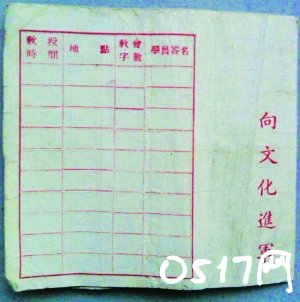 教授時間
地點
教會字數
學員簽名
向文化進軍
0517网